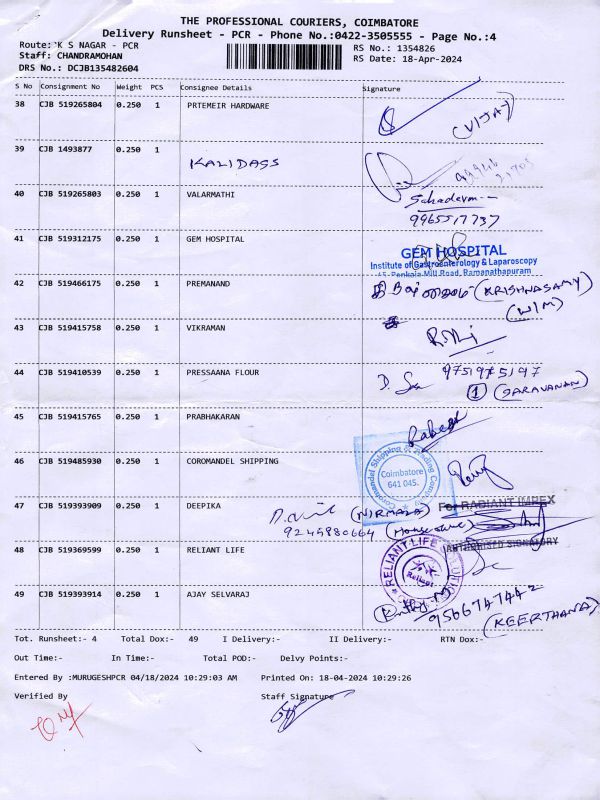 THE PROFESSIONAL COURIERS, COIMBATORE
Delivery Runsheet - PCR - Phone No.:0422-3505555 - Page No.:4
Route:`K S NAGAR - PCR
RS No.: 1354826
Staff: CHANDRAMOHAN
RS Date: 18-Apr-2024
DRS No.: DCJB135482604
S No Consignment No Weight PCS Consignee Details Signature
38 CJB 519265804 0.250 1 PRTEMEIR HARDWARE
(VIJAY)
39 CJB 1493877 0.250 1
KALIDASS
40 CJB 519265803 0.250 1 VALARMATHI
Sahadevan
9965517737
41 CJB 519312175 0.250 1 GEM HOSPITAL
GEM HOSPITAL
Institute of Gastroenterology & Laparoscopy
45, Pankaja Mill Road, Ramanathapuram
42 CJB 519466175 0.250 1 PREMANAND
(KRISHNASAMY)
(W/M)
43 CJB 519415758 0.250 1 VIKRAMAN
44 CJB 519410539 0.250 1 PRESSAANA FLOUR
9751975197
1 (SARAVANAN)
45 CJB 519415765 0.250 1 PRABHAKARAN
46 CJB 519485930 0.250 1 COROMANDEL SHIPPING
Coromandel Shipping & Trading Company
Coimbatore
641 045.
47 CJB 519393909 0.250 1 DEEPIKA
For RADIANT IMPEX
(NIRMALA)
9245880664
AUTHORISED SIGNATORY
48 CJB 519369599 0.250 1 RELIANT LIFE
RELIANT LIFE
Reliant
49 CJB 519393914 0.250 1 AJAY SELVARAJ
9566747442
(KEERTHANA)
Tot. Runsheet:- 4 Total Dox:- 49 I Delivery:- II Delivery:- RTN Dox:-
Out Time:- In Time:- Total POD:- Delvy Points:-
Entered By :MURUGESHPCR 04/18/2024 10:29:03 AM Printed On: 18-04-2024 10:29:26
Verified By Staff Signature